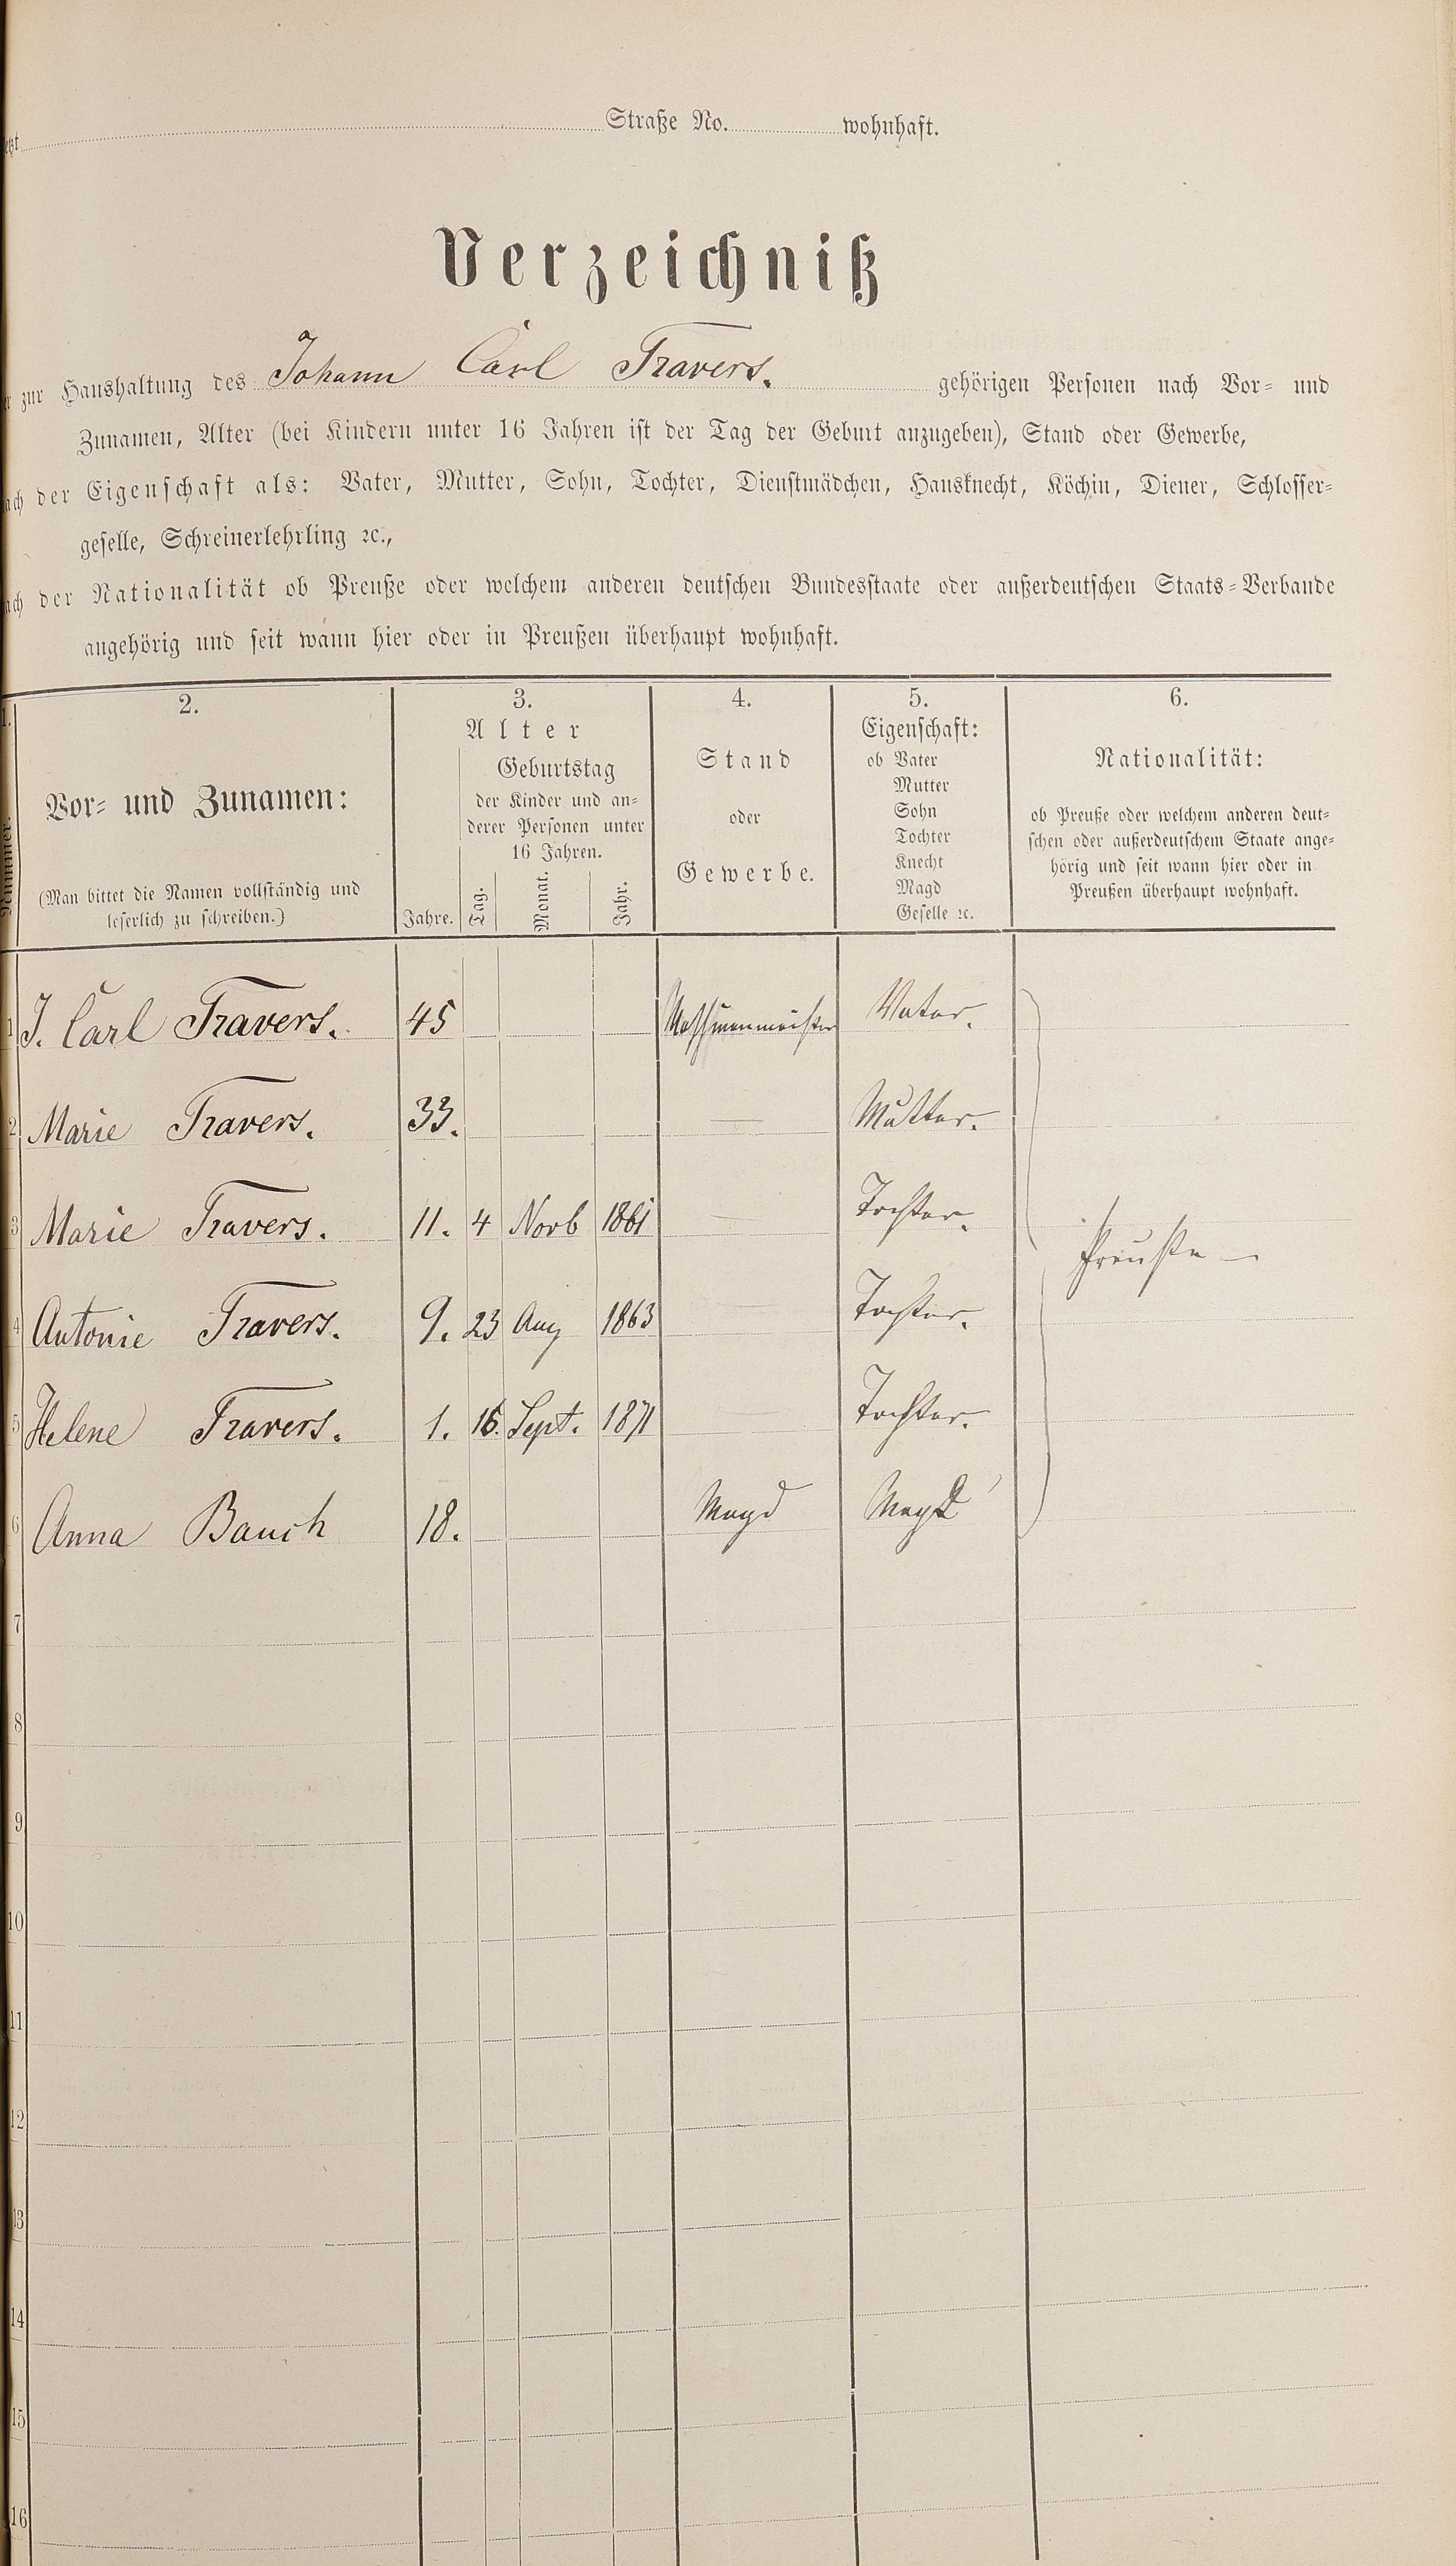 Straße No. wohnhaft.
Verzeichniß
zur Haushaltung des Johann Carl Travers. gehörigen Personen nach Vor- und
Zunamen, Alter (bei Kindern unter 16 Jahren ist der Tag der Geburt anzugeben), Stand oder Gewerbe,
der Eigenschaft als: Vater, Mutter, Sohn, Tochter, Dienstmädchen, Hausknecht, Köchin, Diener, Schlosser-
geselle, Schreinerlehrling ꝛc.,
der Nationalität ob Preuße oder welchem anderen deutschen Bundesstaate oder außerdeutschen Staats-Verbande
angehörig und seit wann hier oder in Preußen überhaupt wohnhaft.
1. 2. 3. 4. 5. 6.
Nummer.
Vor- und Zunamen:
(Man bittet die Namen vollständig und
leserlich zu schreiben.)
Alter
Geburtstag
der Kinder und an-
derer Personen unter
16 Jahren.
Jahre. Tag. Monat. Jahr.
Stand
oder
Gewerbe.
Eigenschaft:
ob Vater
Mutter
Sohn
Tochter
Knecht
Magd
Geselle ꝛc.
Nationalität:
ob Preuße oder welchem anderen deut-
schen oder außerdeutschem Staate ange-
hörig und seit wann hier oder in
Preußen überhaupt wohnhaft.
1 J. Carl Travers. 45 Vater.
2 Marie Travers. 33. — Mutter.
3 Marie Travers. 11. 4 Novb 1861 — Tochter.
Preußen —
4 Antonie Travers. 9. 23 Aug 1863 — Tochter.
5 Helene Travers. 1. 16. Sept. 1871 Tochter.
6 Anna Bauch 18. Magd Magd
7
8
9
10
11
12
13
14
15
16